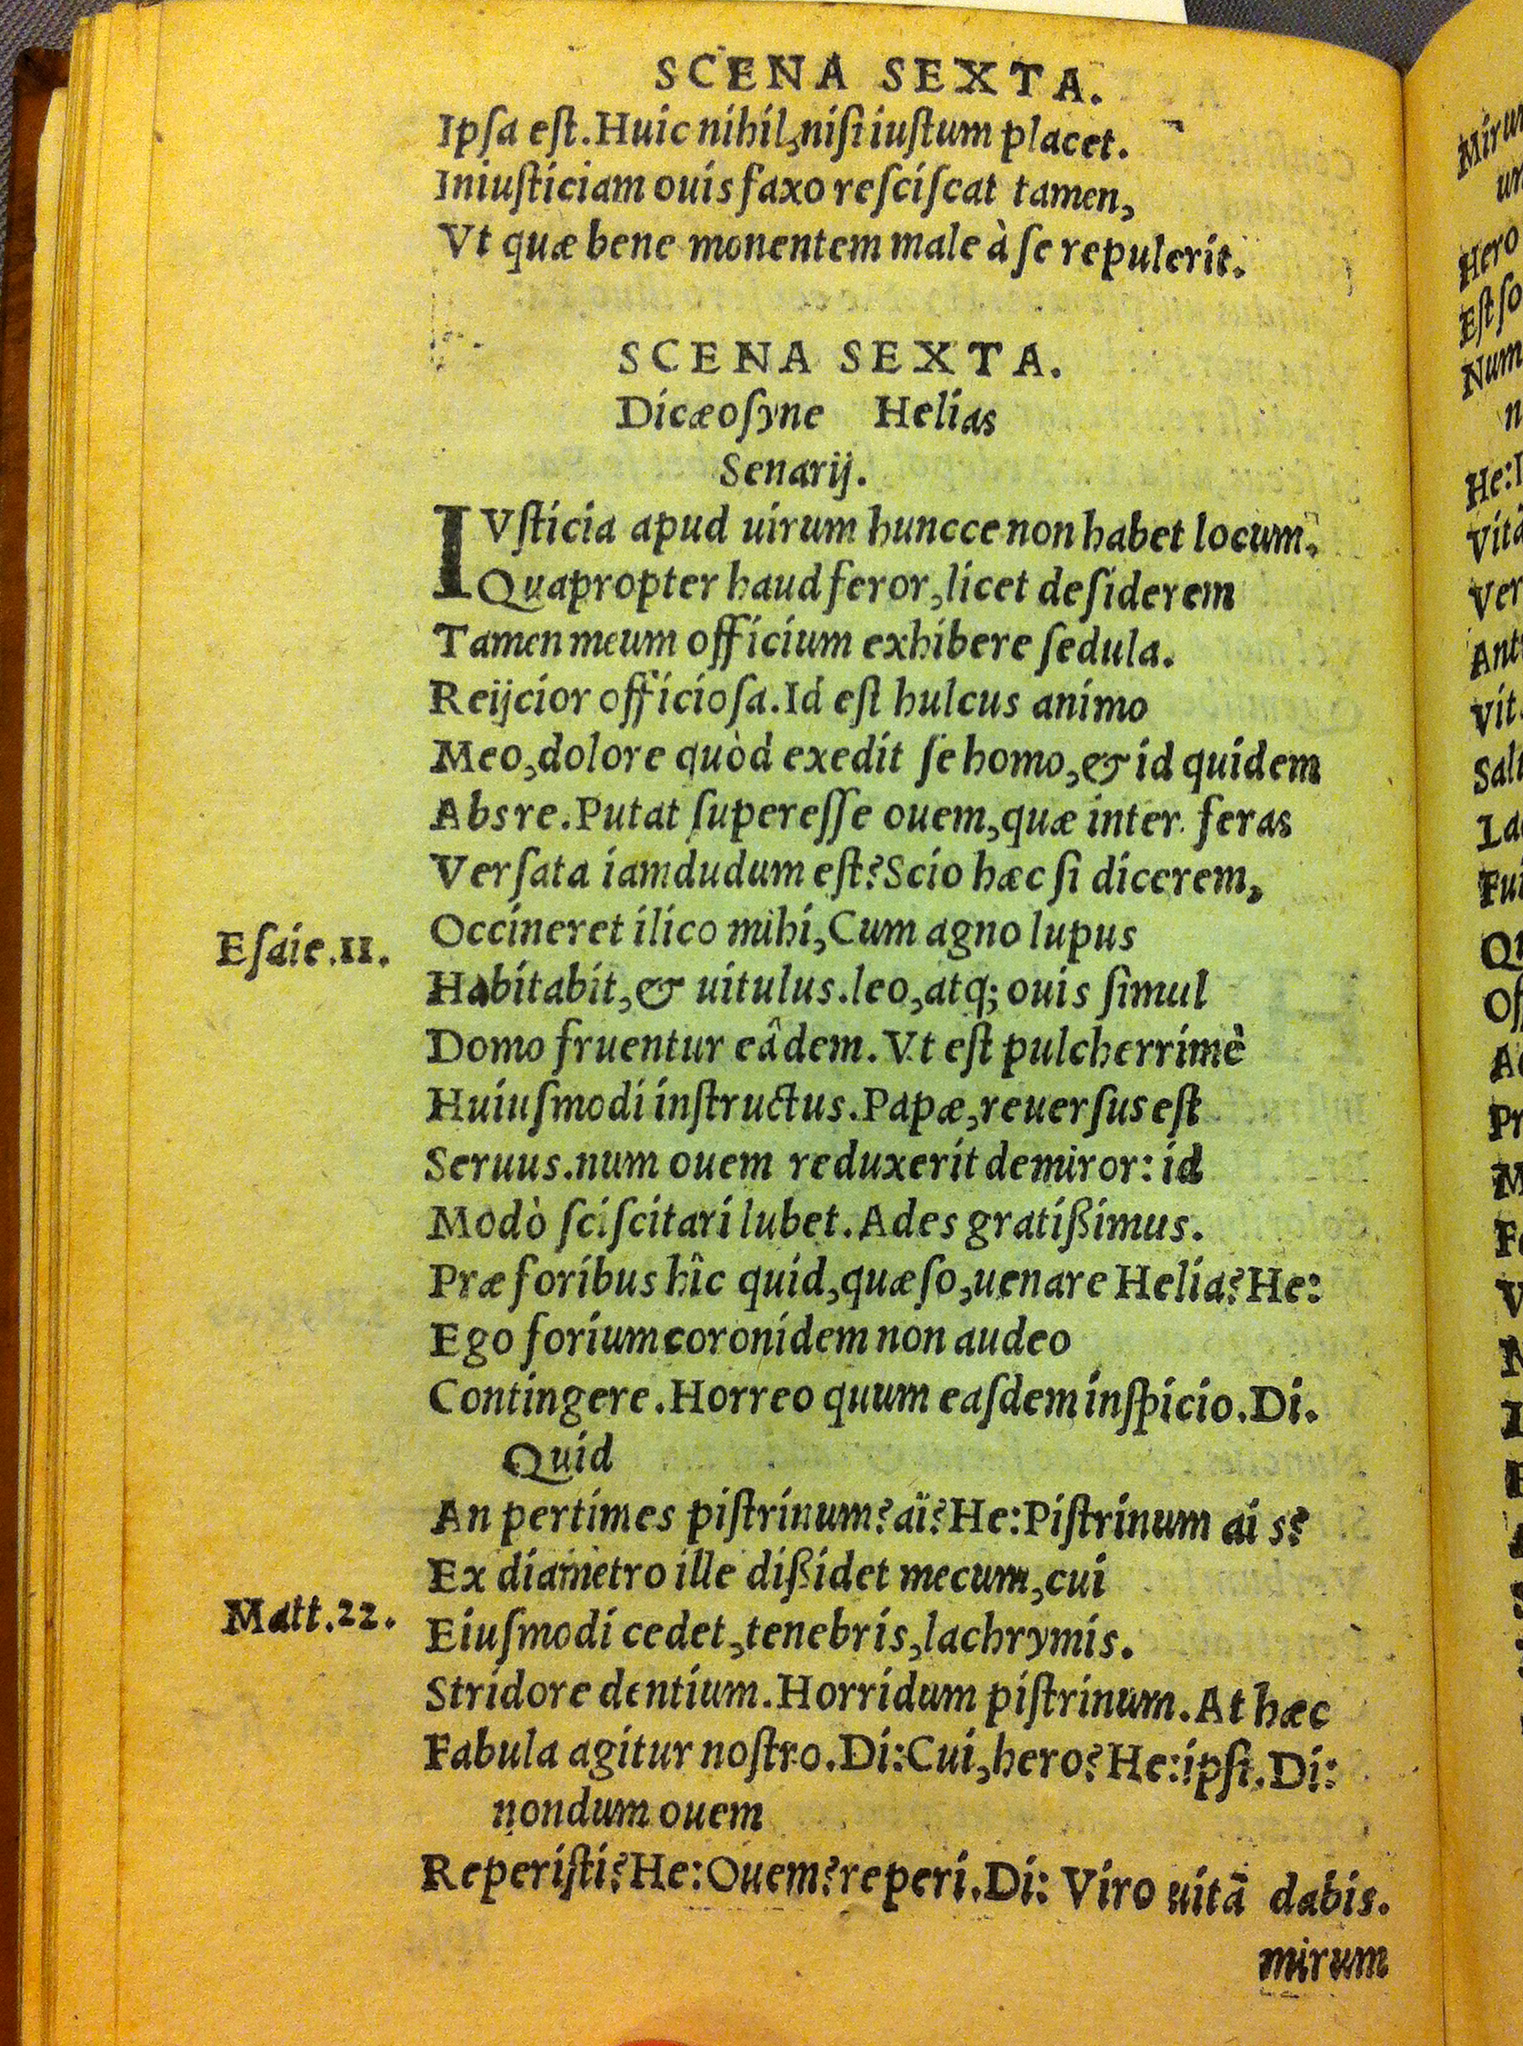 SCENA SEXTA.
Ipſa eſt. Huic nihil, niſi iuſtum placet.
Iniuſticiam ouis faxo reſciſcat tamen,
Vt quæ bene monentem male à ſe repulerit.
SCENA SEXTA.
Dicæoſyne Helias
Senarij.
IVſticia apud uirum huncce non habet locum.
Quapropter haud feror, licet deſiderem
Tamen meum officium exhibere ſedula.
Reijcior officioſa. Id eſt hulcus animo
Meo, dolore quòd exedit ſe homo, & id quidem
Abs re. Putat ſupereſſe ouem, quæ inter feras
Verſata iamdudum eſt? Scio hæc ſi dicerem,
Eſaie. 11.
Occineret ilico mihi, Cum agno lupus
Habitabit, & uitulus. leo, atq; ouis ſimul
Domo fruentur eâdem. Vt eſt pulcherrimè
Huiuſmodi inſtructus. Papæ, reuerſus eſt
Seruus. num ouem reduxerit demiror: id
Modò ſciſcitari lubet. Ades gratißimus.
Præ foribus hîc quid, quæſo, uenare Helia? He:
Ego forium coronidem non audeo
Contingere. Horreo quum eaſdem inſpicio. Di.
Quid
An pertimes piſtrinum? aï? He: Piſtrinum ai s?
Ex diametro ille dißidet mecum, cui
Matt. 22.
Eiuſmodi cedet, tenebris, lachrymis.
Stridore dentium. Horridum piſtrinum. At hæc
Fabula agitur noſtro. Di: Cui, hero? He: ipſi. Di:
nondum ouem
Reperiſti? He: Ouem? reperi. Di: Viro uitā dabis.
mirum
Mirum
Hero
Eſt ſo
Num
He:
Vitā
Ver
Ant
Vit
Salt